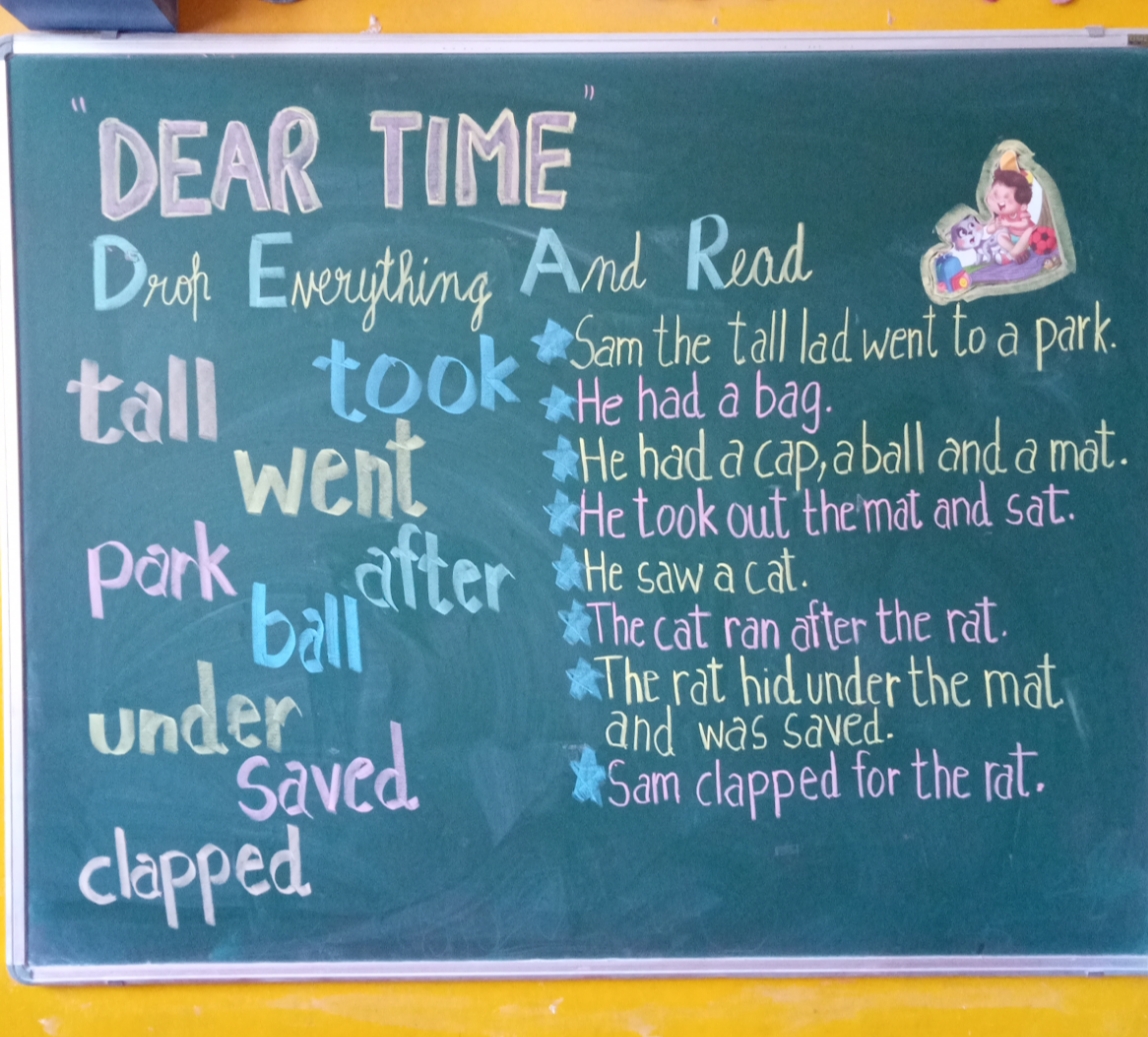 "DEAR TIME"
Drop Everything And Read
tall
took
went
park
after
ball
under
saved
clapped
Sam the tall lad went to a park.
He had a bag.
He had a cap, a ball and a mat.
He took out the mat and sat.
He saw a cat.
The cat ran after the rat.
The rat hid under the mat
and was saved.
Sam clapped for the rat.